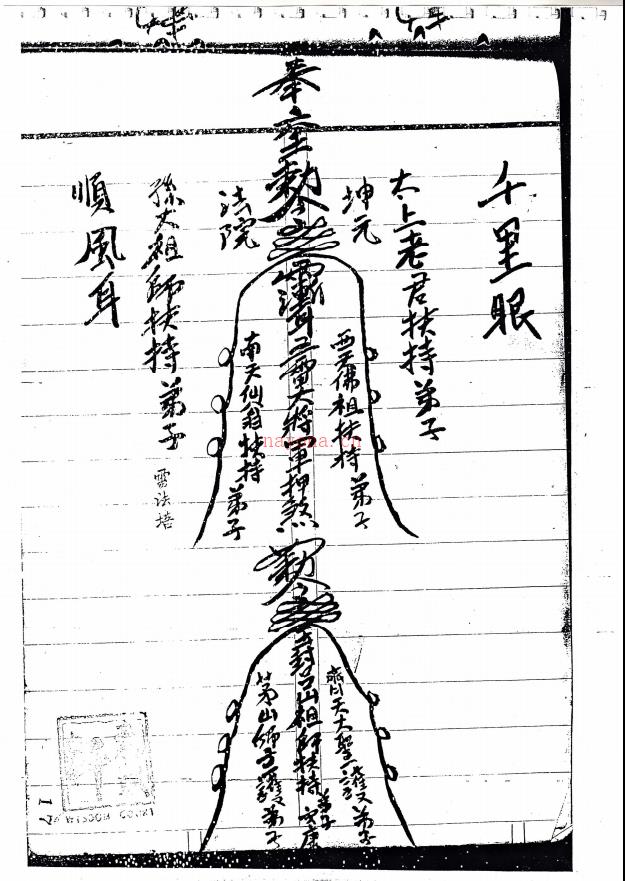 千里眼
太上老君扶持弟子
坤元
奉
勅令
雷大將軍押煞
西天佛祖扶持弟子
南天仙翁扶持弟子
法院
孫大祖師扶持弟子
雷法培
順風耳
勅令
山祖師扶持弟子
齊天大聖護弟子
茅山師護弟子
17